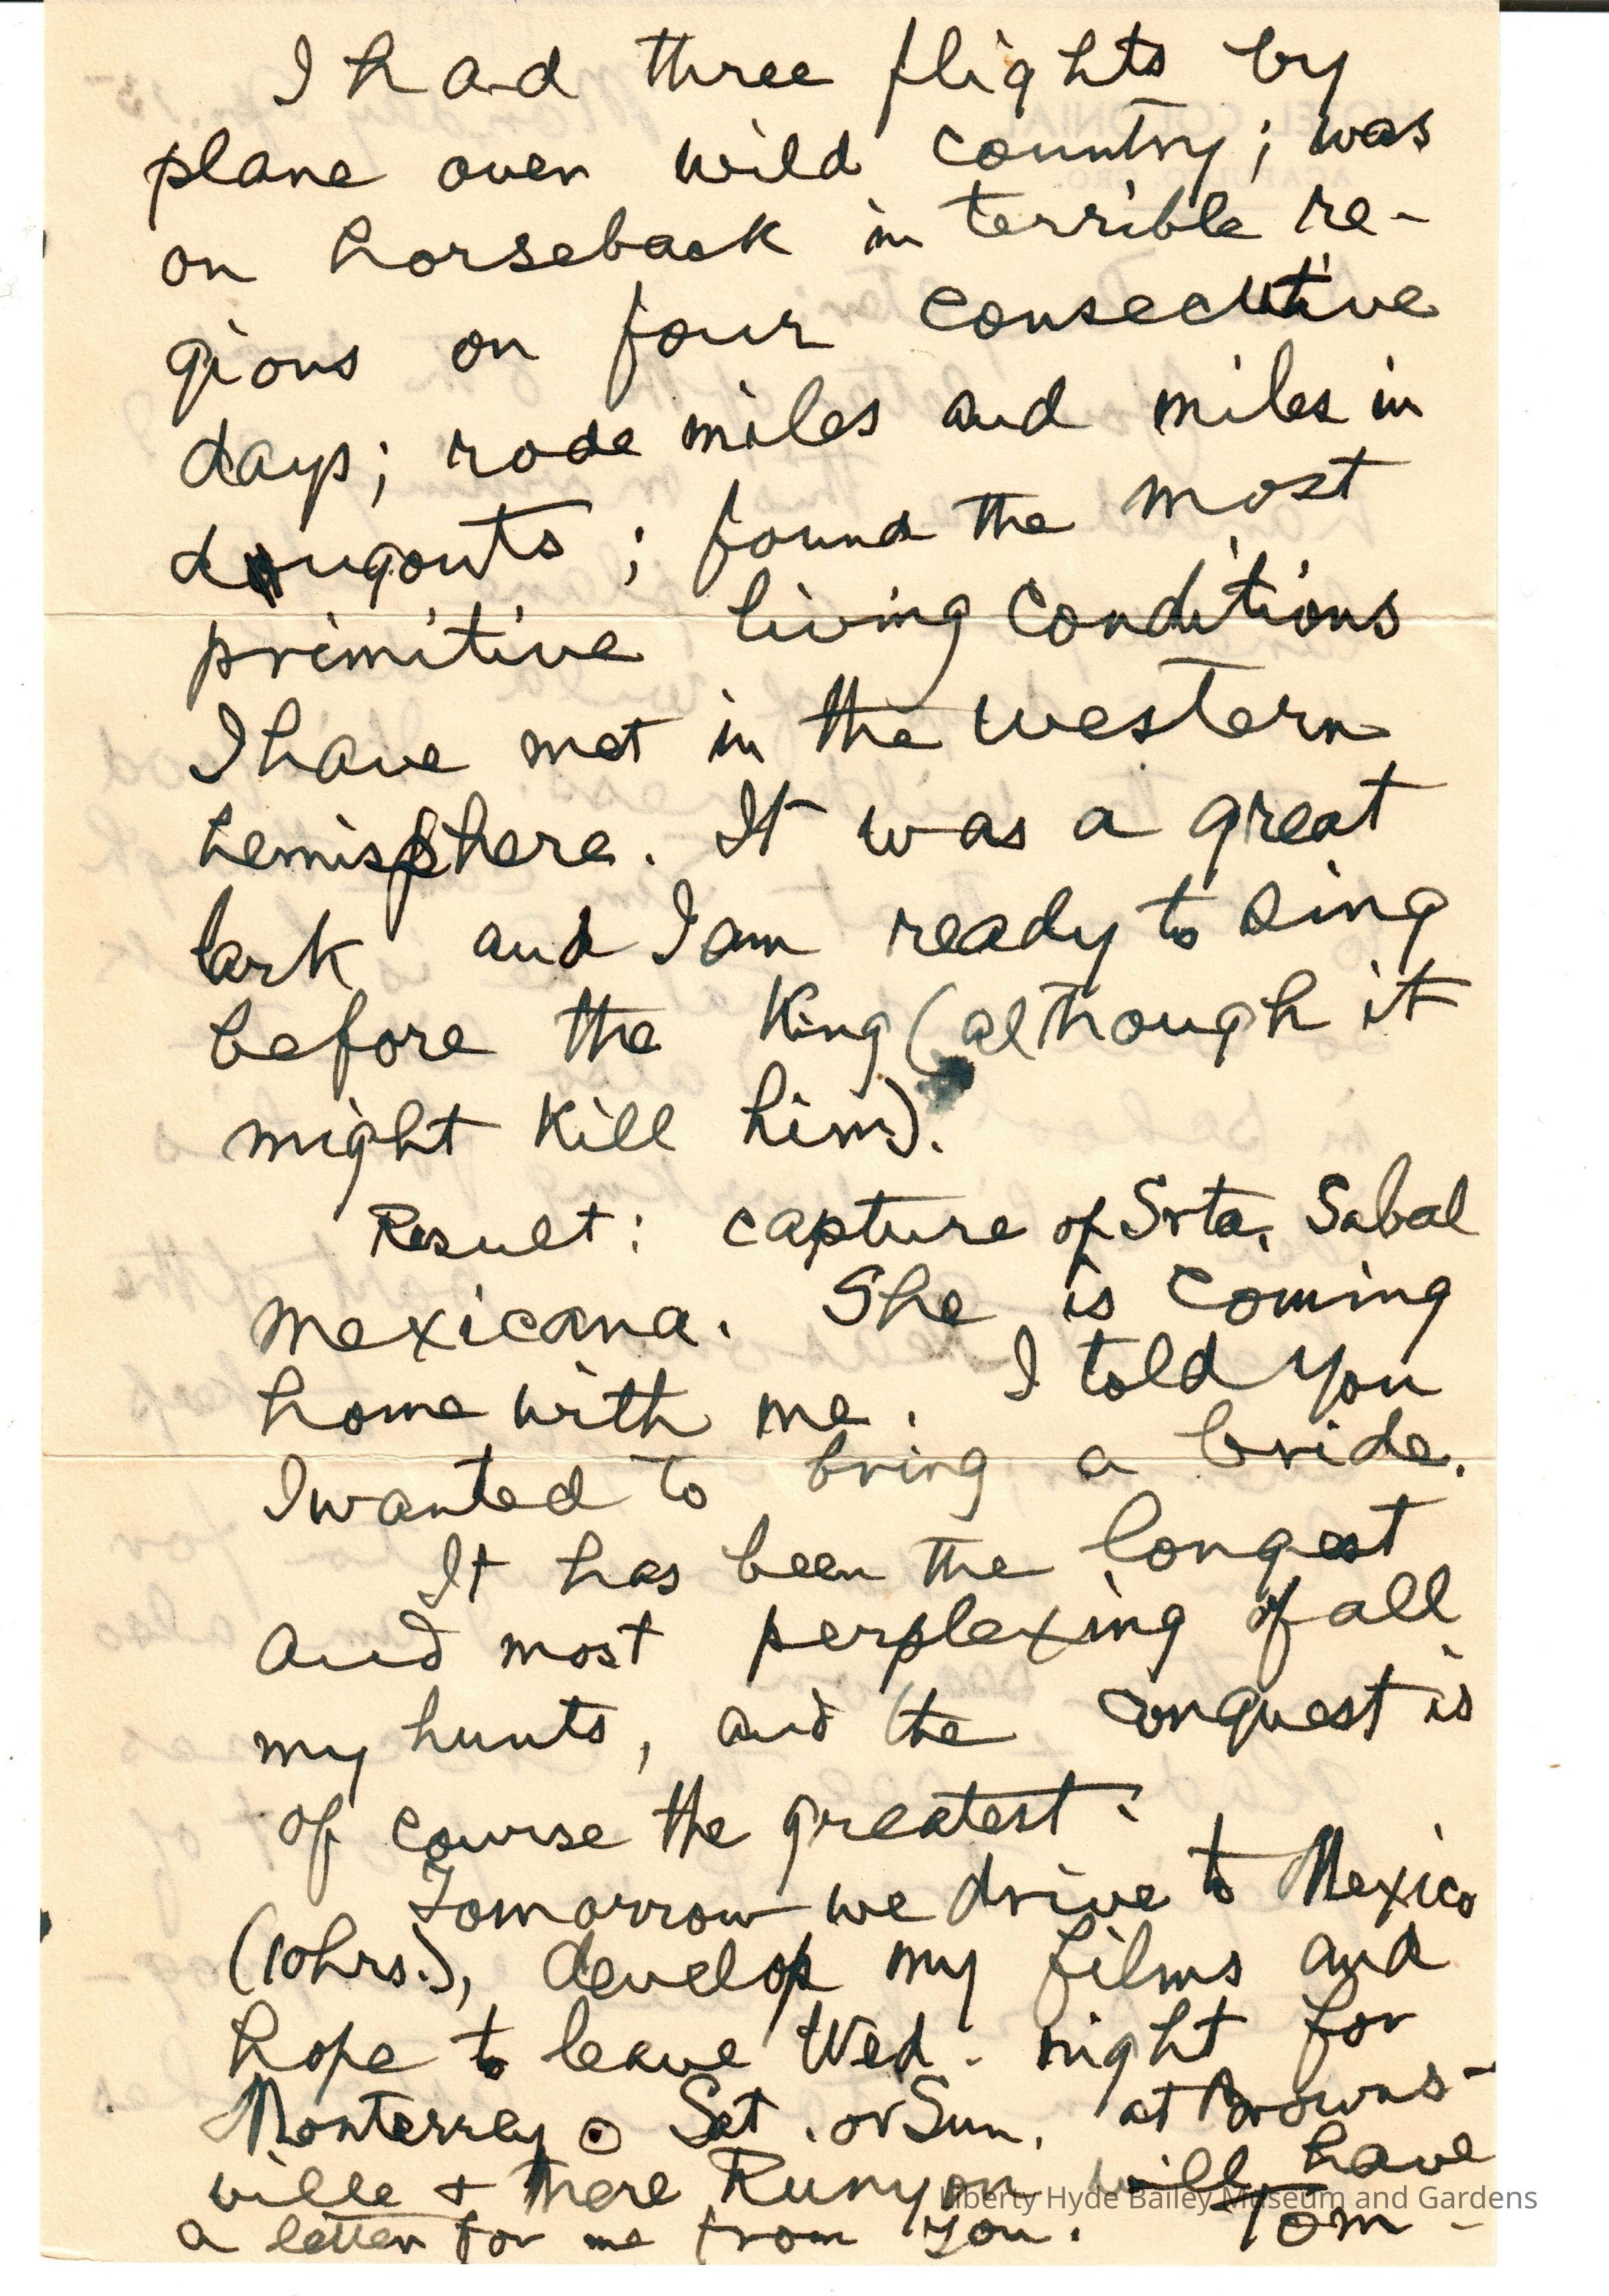 I had three flights by
plane over wild country; was
on horseback in terrible re-
gions on four consecutive
days; rode miles and miles in
dugouts; found the most
primitive living conditions
I have met in the western
hemisphere. It was a great
lark and I am ready to sing
before the King (although it
might kill him).
Result: capture of Srta. Sabal
mexicana. She is coming
home with me. I told you
I wanted to bring a bride.
It has been the longest
and most perplexing of all
my hunts, and the conquest is
of course the greatest.
Tomorrow we drive to Mexico
(10 hrs.), develop my films and
hope to leave Wed. night for
Monterrey. Sat. or Sun. at Browns-
ville & there Runyon will have
a letter for me from you. Tom-
Liberty Hyde Bailey Museum and Gardens